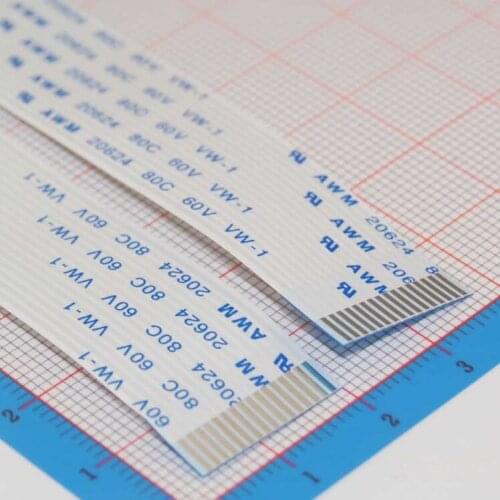 20624 80C 60V VW-1
AWM 20624 80C 60V VW-1
AWM 20624 80C 60V VW-1
AWM 20624 80C 60V VW-1
AWM 20624 80C 60V VW-1
AWM 20624 8
AWM 206
AWM
AWM 20624 80C 60V VW-1
20624 80C 60V VW-1
20624 80C 60V VW-1
80C 60V VW-1
60V
2
1
1
2
3